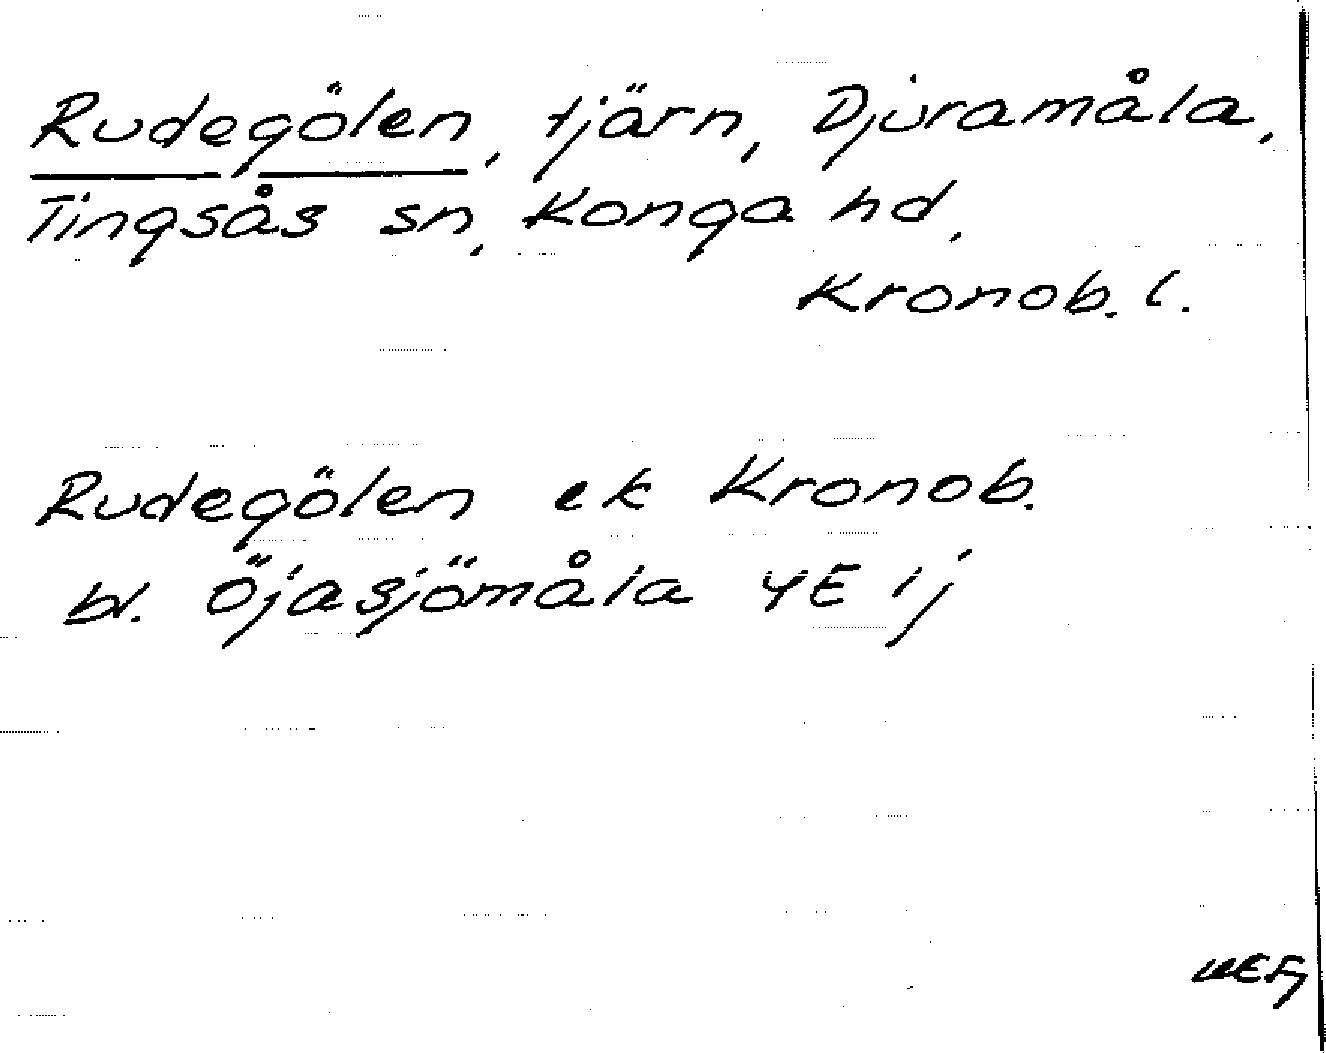 Rudegölen, tjärn, Djuramåla,
Tingsås sn, Konga hd,
Kronob. l.
Rudegölen ek Kronob.
bl. Öjasjömåla 4E ij